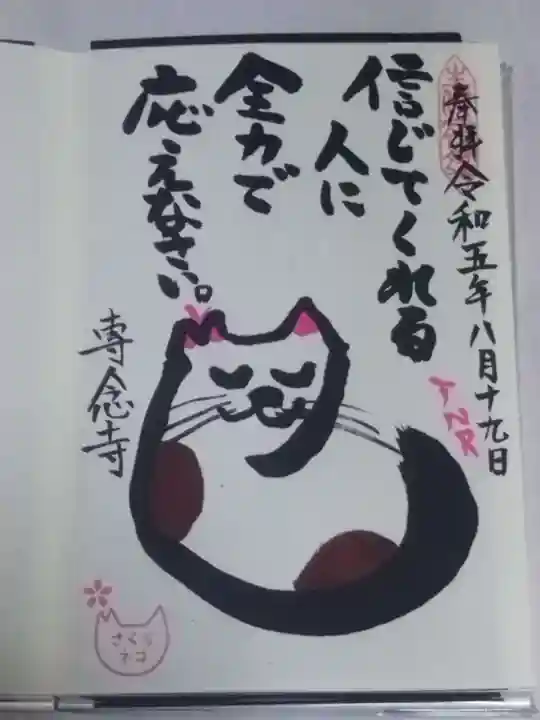 奉拝 令和五年八月十九日
TNR
信じてくれる
人に
全力で
応えなさい。
専念寺
さくら
ネコ